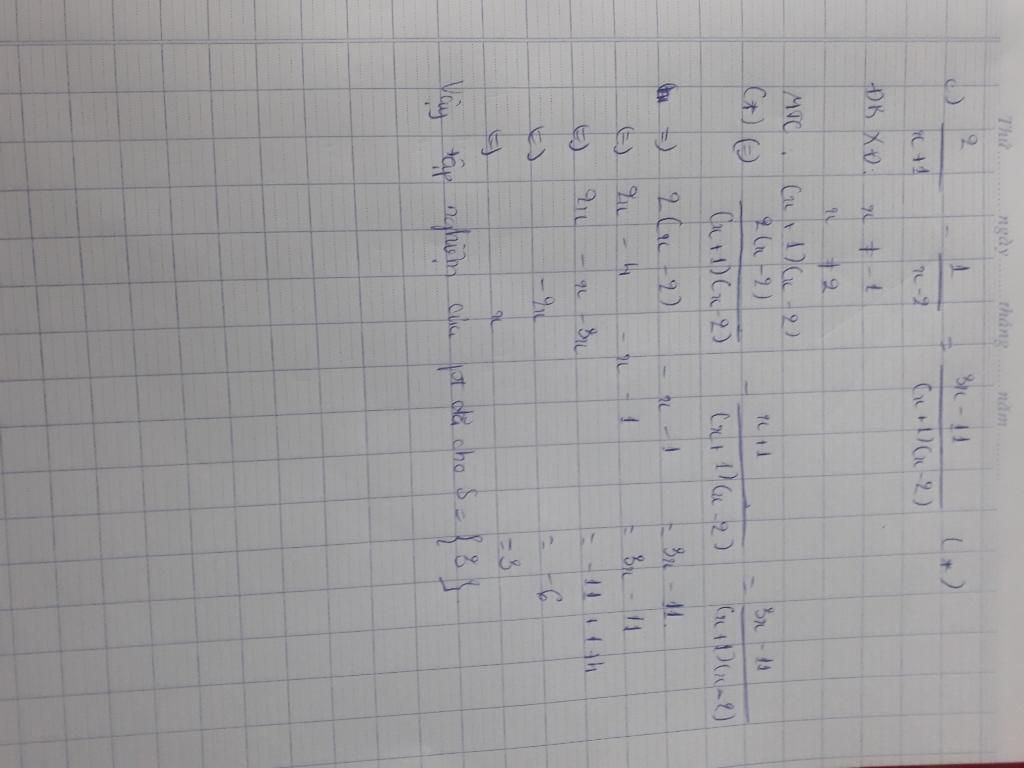 Thứ ngày tháng năm
c) 2/(x+1) - 1/(x-2) = (3x-11)/((x+1)(x-2)) (*)
ĐKXĐ: x ≠ -1
x ≠ 2
MTC: (x+1)(x-2)
(*) (=) 2(x-2)/((x+1)(x-2)) - (x+1)/((x+1)(x-2)) = (3x-11)/((x+1)(x-2))
=) 2(x-2) - x - 1 = 3x - 11
(=) 2x - 4 - x - 1 = 3x - 11
(=) 2x - x - 3x = -11 + 1 + 4
(=) -2x = -6
(=) x = 3
Vậy tập nghiệm của pt đã cho S = {3}